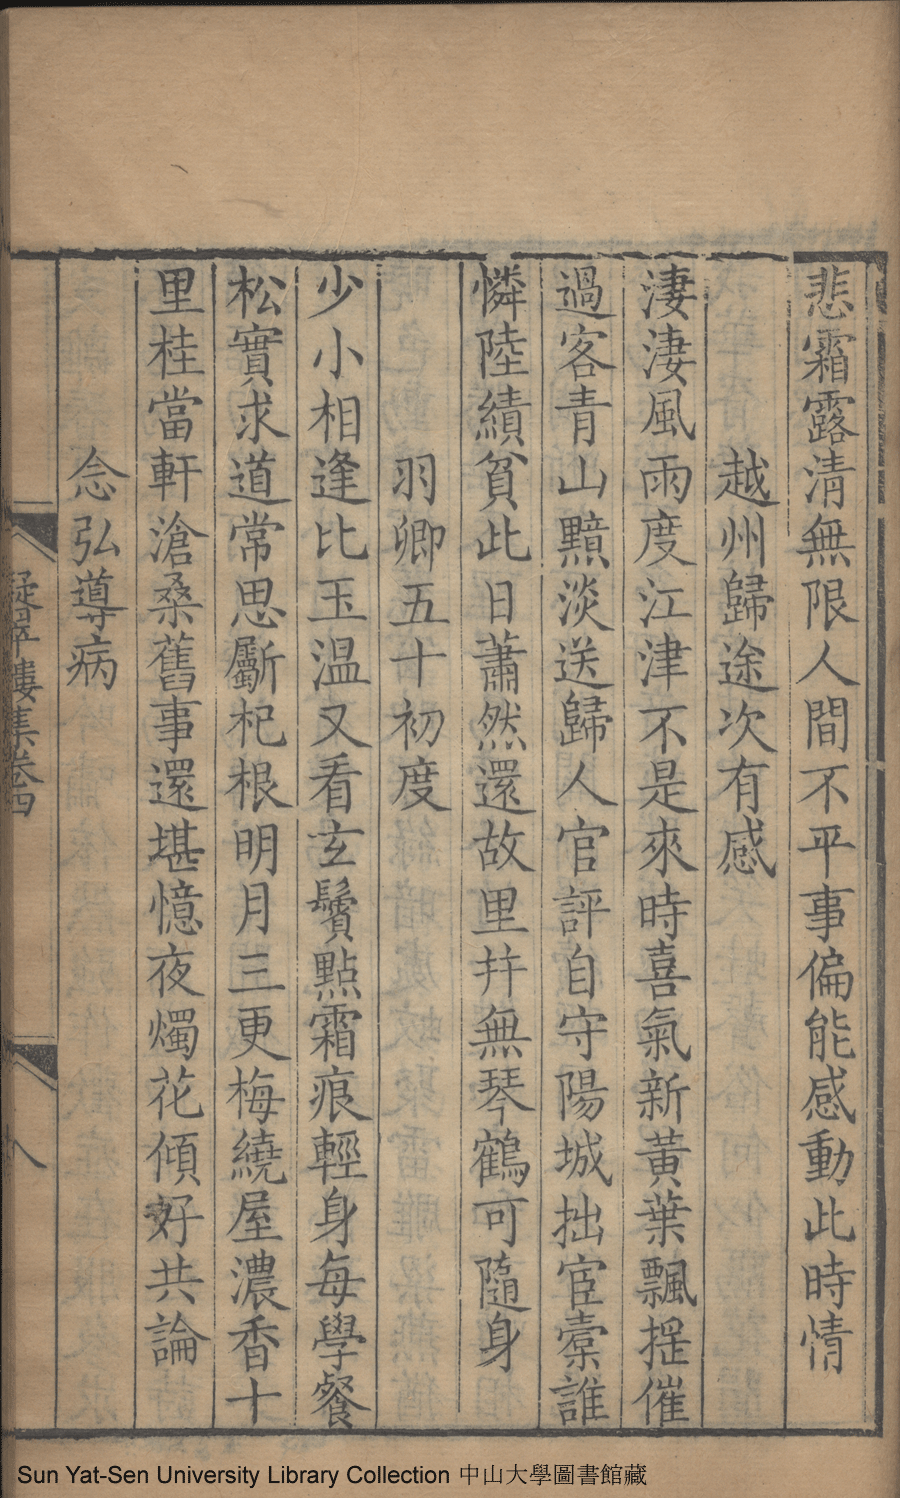 悲霜露清無限人間不平事偏能感動此時情
越州歸途次有感
淒淒風雨度江津不是來時喜氣新黃葉飄搖催
過客青山黯淡送歸人官評自守陽城拙宦橐誰
憐陸績貧此日蕭然還故里并無琴鶴可隨身
羽卿五十初度
少小相逢比玉溫又看玄鬢點霜痕輕身每學餐
松實求道常思斸杞根明月三更梅繞屋濃香十
里桂當軒滄桑舊事還堪憶夜燭花傾好共論
念弘導病
凝翠樓集卷四
八
Sun Yat-Sen University Library Collection 中山大學圖書館藏